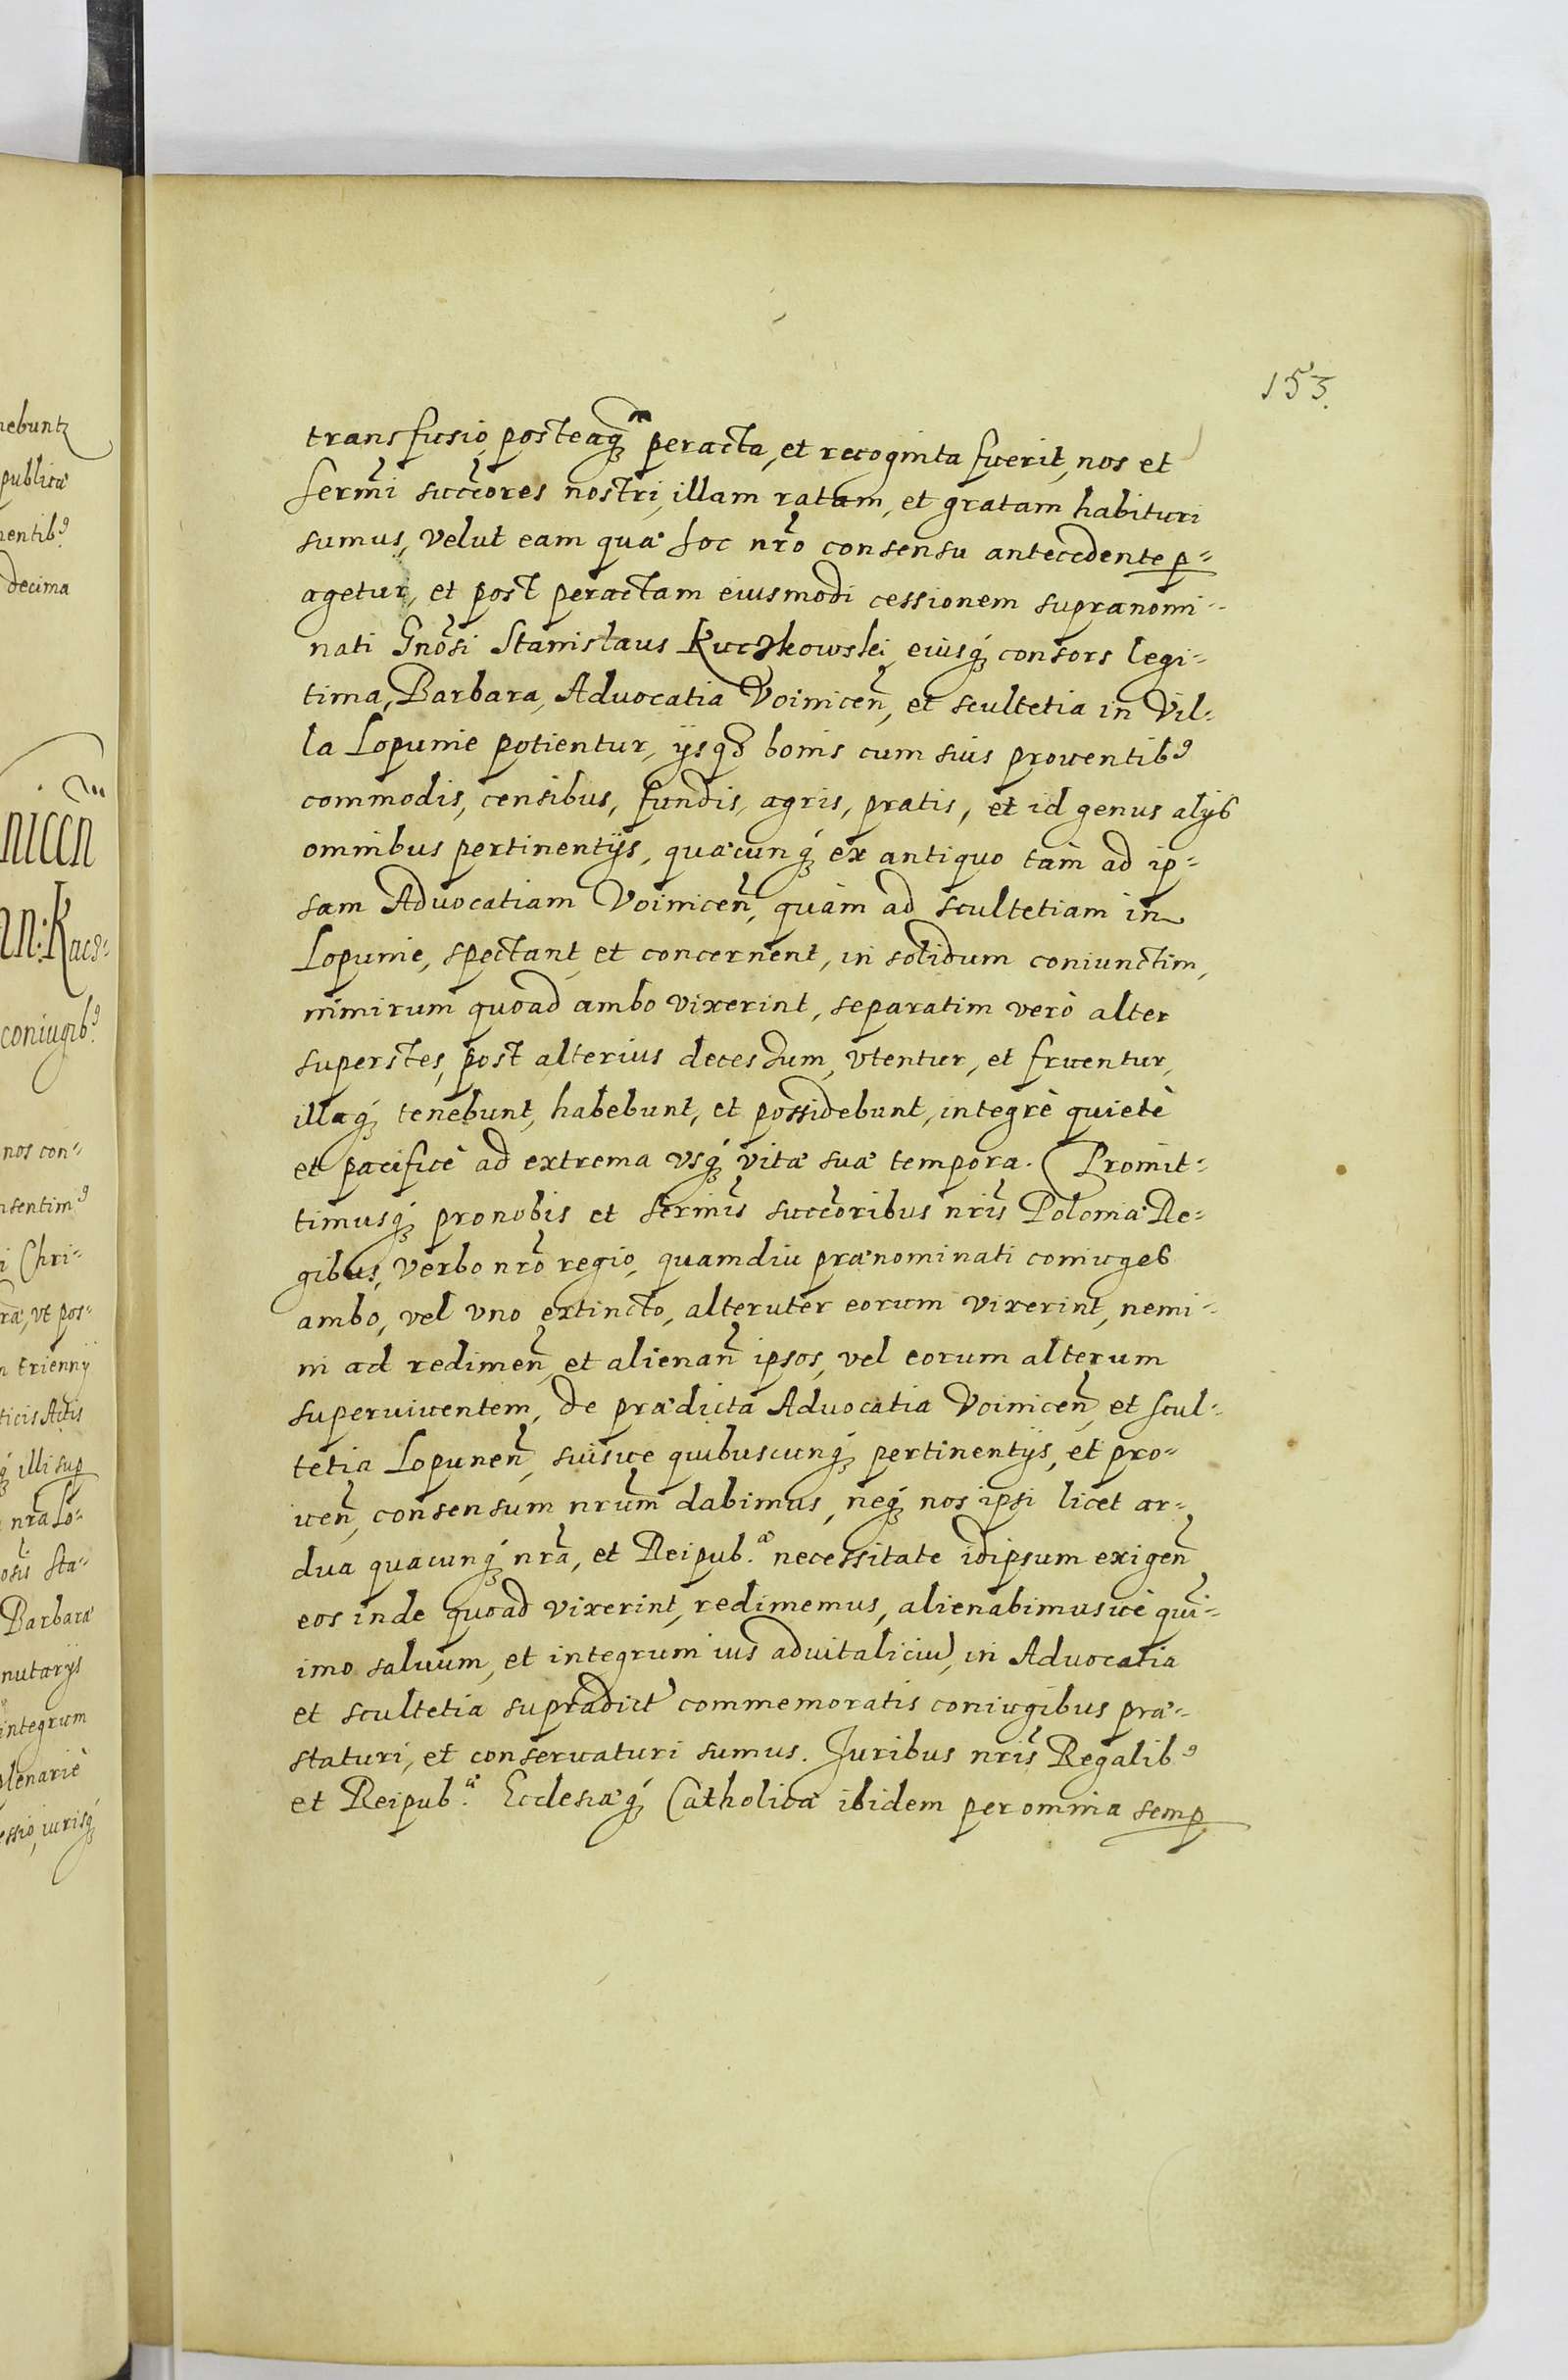 153.
transfusio, posteaq̃ peracta, et recognita fuerit, nos et
sermi succores nostri, illam ratam, et gratam habituri
sumus, velut eam quæ hoc nro consensu antecedente p=
agetur, et post peractam eiusmodi cessionem supranomi=
nati Gnosi Stanislaus Kuczkowski eiusq́ꝫ consors legi=
tima, Barbara, Advocatia Voinicen̄, et scultetia in Vil=
la Lopunie potientur, ysqꝫ bonis cum suis prouentibꝰ
commodis, censibus, fundis, agris, pratis, et id genus alys
omnibus pertinentÿs, quæcunq́ꝫ ex antiquo tam ad ip=
sam Advocatiam Voinicen̄, quàm ad scultetiam in
Lopunie, spectant et concernent, in solidum coniunctim,
nimirum quoad ambo vixerint, separatim verò alter
superstes, post alterius decessum, vtentur, et fruentur,
illaq́ꝫ tenebunt, habebunt, et possidebunt, integrè quietè
et pacificè ad extrema vsq́ꝫ vitæ suæ tempora. Promit=
timusq́ꝫ pro nobis et sermis succoribus nris Poloniæ Re=
gibus, verbo nro regio, quamdiu prænominati coniuges
ambo, vel vno extincto, alteruter eorum vixerint, nemi=
ni ad redimen̄ et alienan̄ ipsos, vel eorum alterum
superuiuentem, de prædicta Advocatia Voinicen̄ et scul=
tetia Lopunen̄, suisue quibuscunq́ꝫ pertinentÿs, et pro=
uen̄, consensum nrum dabimus, neq́ꝫ nos ipsi licet ar=
dua quacunq́ꝫ nra, et Reipub.æ necessitate idipsum exigen̄
eos inde quoad vixerint, redimemus, alienabimusuè qui=
imo saluum, et integrum ius aduitaliciū, in Advocatia
et scultetia supradict commemoratis coniugibus præ=
staturi, et conseruaturi sumus. Juribus nris Regalibꝰ
et Reipub.æ Ecclesiæq́ꝫ Catholicæ ibidem per omnia semp